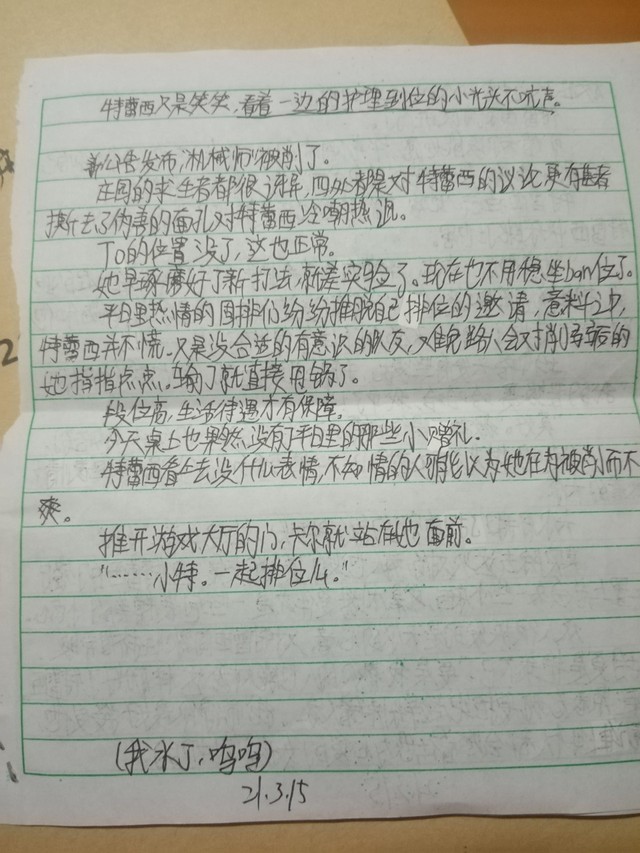 特蕾西只是笑笑，看着一边的护理到位的小光头不吭声。
新公告发布，“机械师”被削了。
庄园的求生者都很讶异，四处都是对特蕾西的议论，更有甚者
撕去了伪善的面孔对特蕾西冷嘲热讽。
T0的位置没了，这也正常。
她早琢磨好了新打法，就差实验了。现在也不用稳坐ban位了。
平日里热情的固排们纷纷推脱自己排位的邀请，意料之中，
特蕾西并不慌。只是没合适的有意识的队友，难免路人会对削弱后的
她指指点点，输了就直接甩锅了。
段位高，生活待遇才有保障。
今天桌上也果然没有了平日里的那些小赠礼。
特蕾西看上去没什么表情，不知情的人可能以为她在为被削而不
爽。
推开游戏大厅的门，卡尔就站在她面前。
“……小特。一起排位么。”
（我水了，呜呜）
21.3.15
2